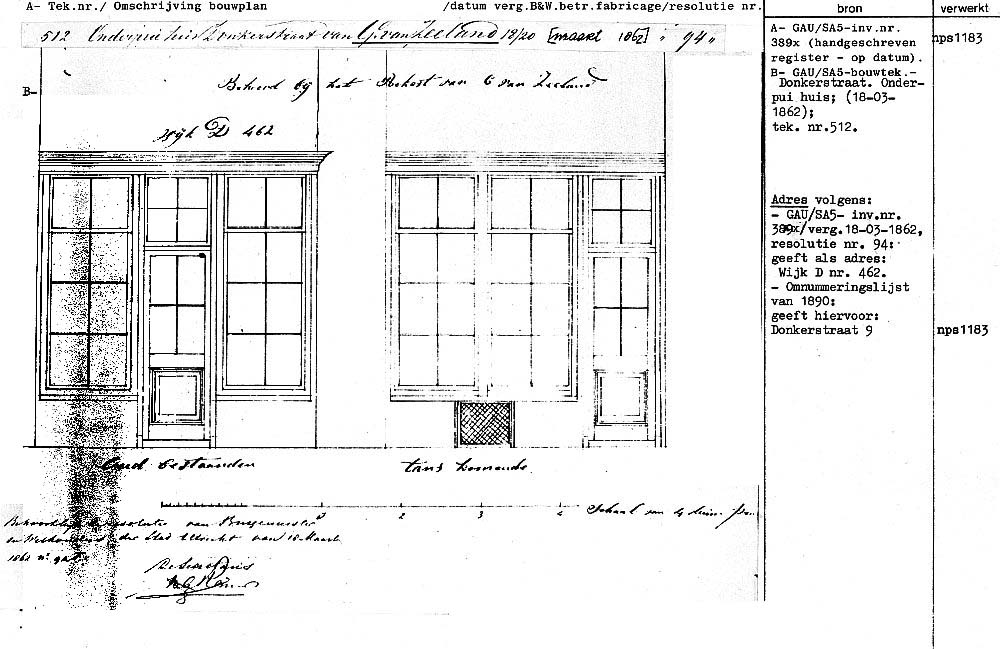 A- Tek.nr./ Omschrijving bouwplan
/datum verg.B&W.betr.fabricage/resolutie nr.
bron
verwerkt
512 Onderpui huis Donkerstraat van G. van Zeeland 18/20 [maart 1862] " 94 "
B-
Behoord bij het Rekest van G van Zeeland
Wijk D 462
Oud bestaanden
tans komende
2 3 4 Schaal van 4 duim
Behoorende resolutie van Burgemeester
en Wethouders der Stad Utrecht van 18 Maart
1862 nº 94
De Secretaris
A- GAU/SA5-inv.nr.
389x (handgeschreven
register - op datum).
B- GAU/SA5-bouwtek.-
Donkerstraat. Onder-
pui huis; (18-03-
1862);
tek. nr.512.
nps1183
Adres volgens:
- GAU/SA5- inv.nr.
389x/verg.18-03-1862,
resolutie nr. 94:
geeft als adres:
Wijk D nr. 462.
- Omnummeringslijst
van 1890:
geeft hiervoor:
Donkerstraat 9
nps1183